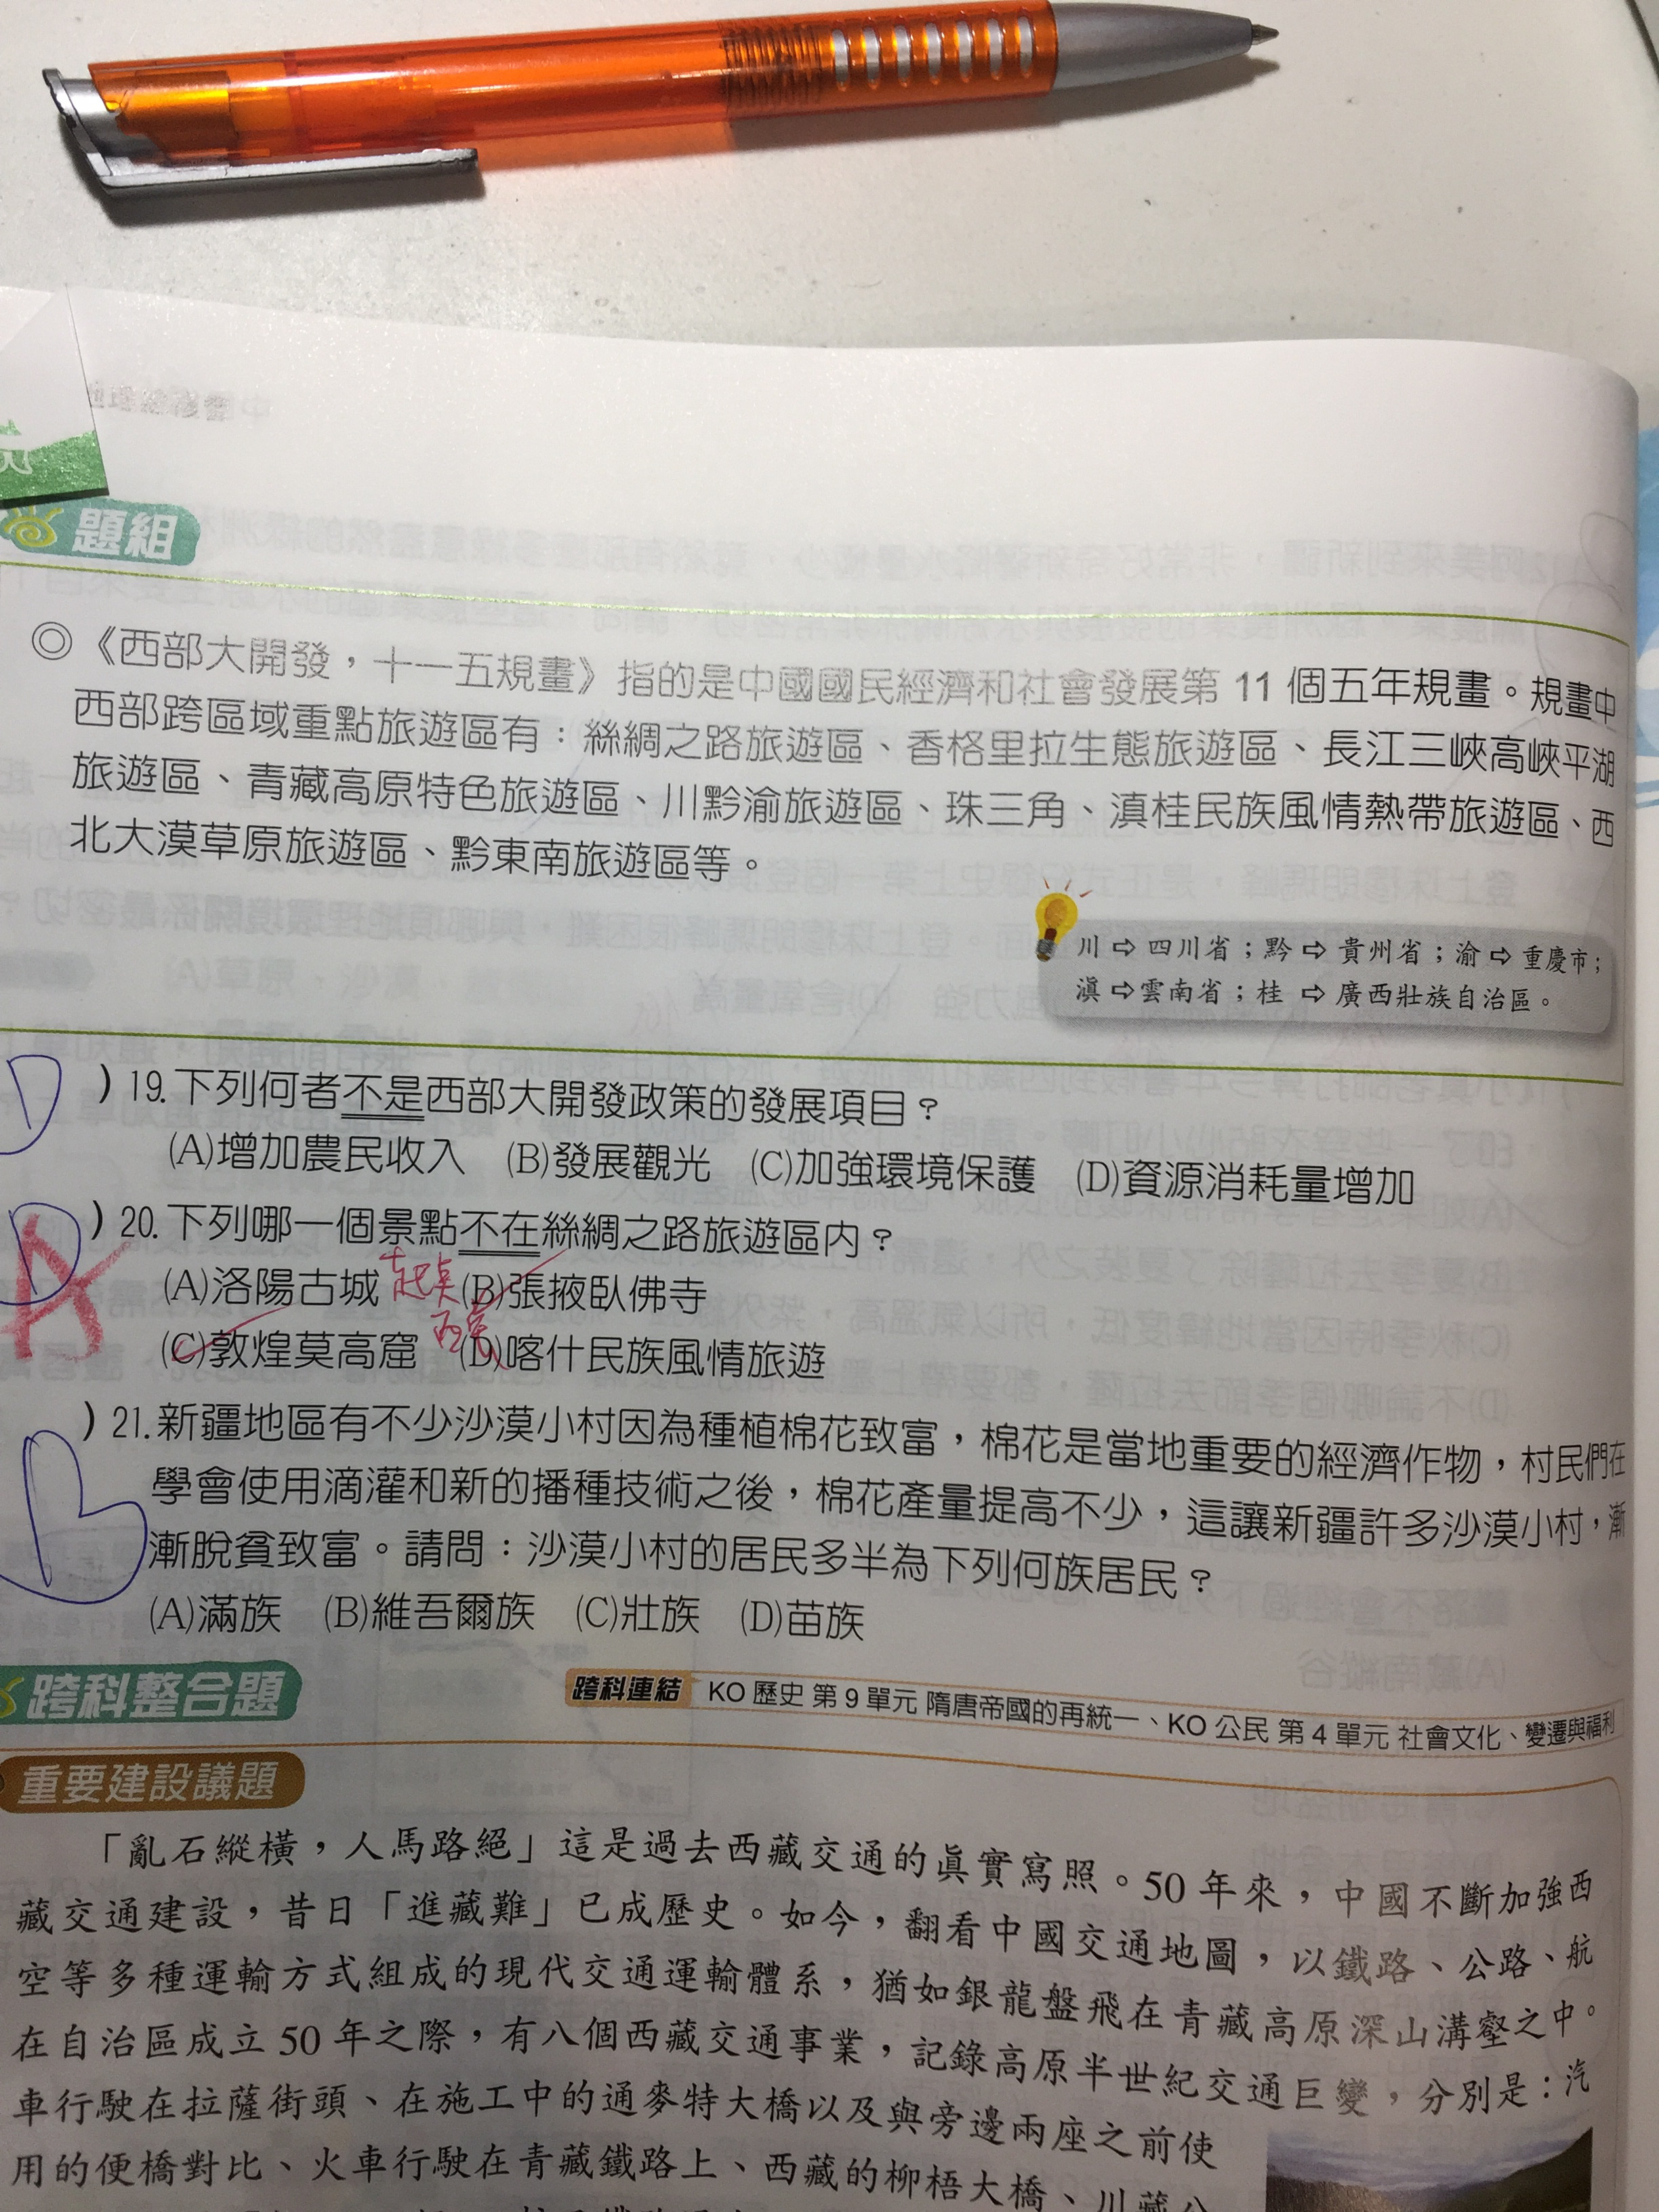 題組
◎《西部大開發，十一五規畫》指的是中國國民經濟和社會發展第 11 個五年規畫。規畫中
西部跨區域重點旅遊區有：絲綢之路旅遊區、香格里拉生態旅遊區、長江三峽高峽平湖
旅遊區、青藏高原特色旅遊區、川黔渝旅遊區、珠三角、滇桂民族風情熱帶旅遊區、西
北大漠草原旅遊區、黔東南旅遊區等。
川⇨四川省；黔⇨貴州省；渝⇨重慶市；
滇⇨雲南省；桂⇨廣西壯族自治區。
D )19.下列何者不是西部大開發政策的發展項目？
(A)增加農民收入 (B)發展觀光 (C)加強環境保護 (D)資源消耗量增加
D A )20.下列哪一個景點不在絲綢之路旅遊區內？
(A)洛陽古城 起點 (B)張掖臥佛寺
西安
(C)敦煌莫高窟 (D)喀什民族風情旅遊
B )21.新疆地區有不少沙漠小村因為種植棉花致富，棉花是當地重要的經濟作物，村民們在
學會使用滴灌和新的播種技術之後，棉花產量提高不少，這讓新疆許多沙漠小村，漸
漸脫貧致富。請問：沙漠小村的居民多半為下列何族居民？
(A)滿族 (B)維吾爾族 (C)壯族 (D)苗族
跨科整合題
跨科連結 KO 歷史 第 9 單元 隋唐帝國的再統一、KO 公民 第 4 單元 社會文化、變遷與福利
重要建設議題
「亂石縱橫，人馬路絕」這是過去西藏交通的真實寫照。50 年來，中國不斷加強西
藏交通建設，昔日「進藏難」已成歷史。如今，翻看中國交通地圖，以鐵路、公路、航
空等多種運輸方式組成的現代交通運輸體系，猶如銀龍盤飛在青藏高原深山溝壑之中。
在自治區成立 50 年之際，有八個西藏交通事業，記錄高原半世紀交通巨變，分別是：汽
車行駛在拉薩街頭、在施工中的通麥特大橋以及與旁邊兩座之前使
用的便橋對比、火車行駛在青藏鐵路上、西藏的柳梧大橋、川藏公